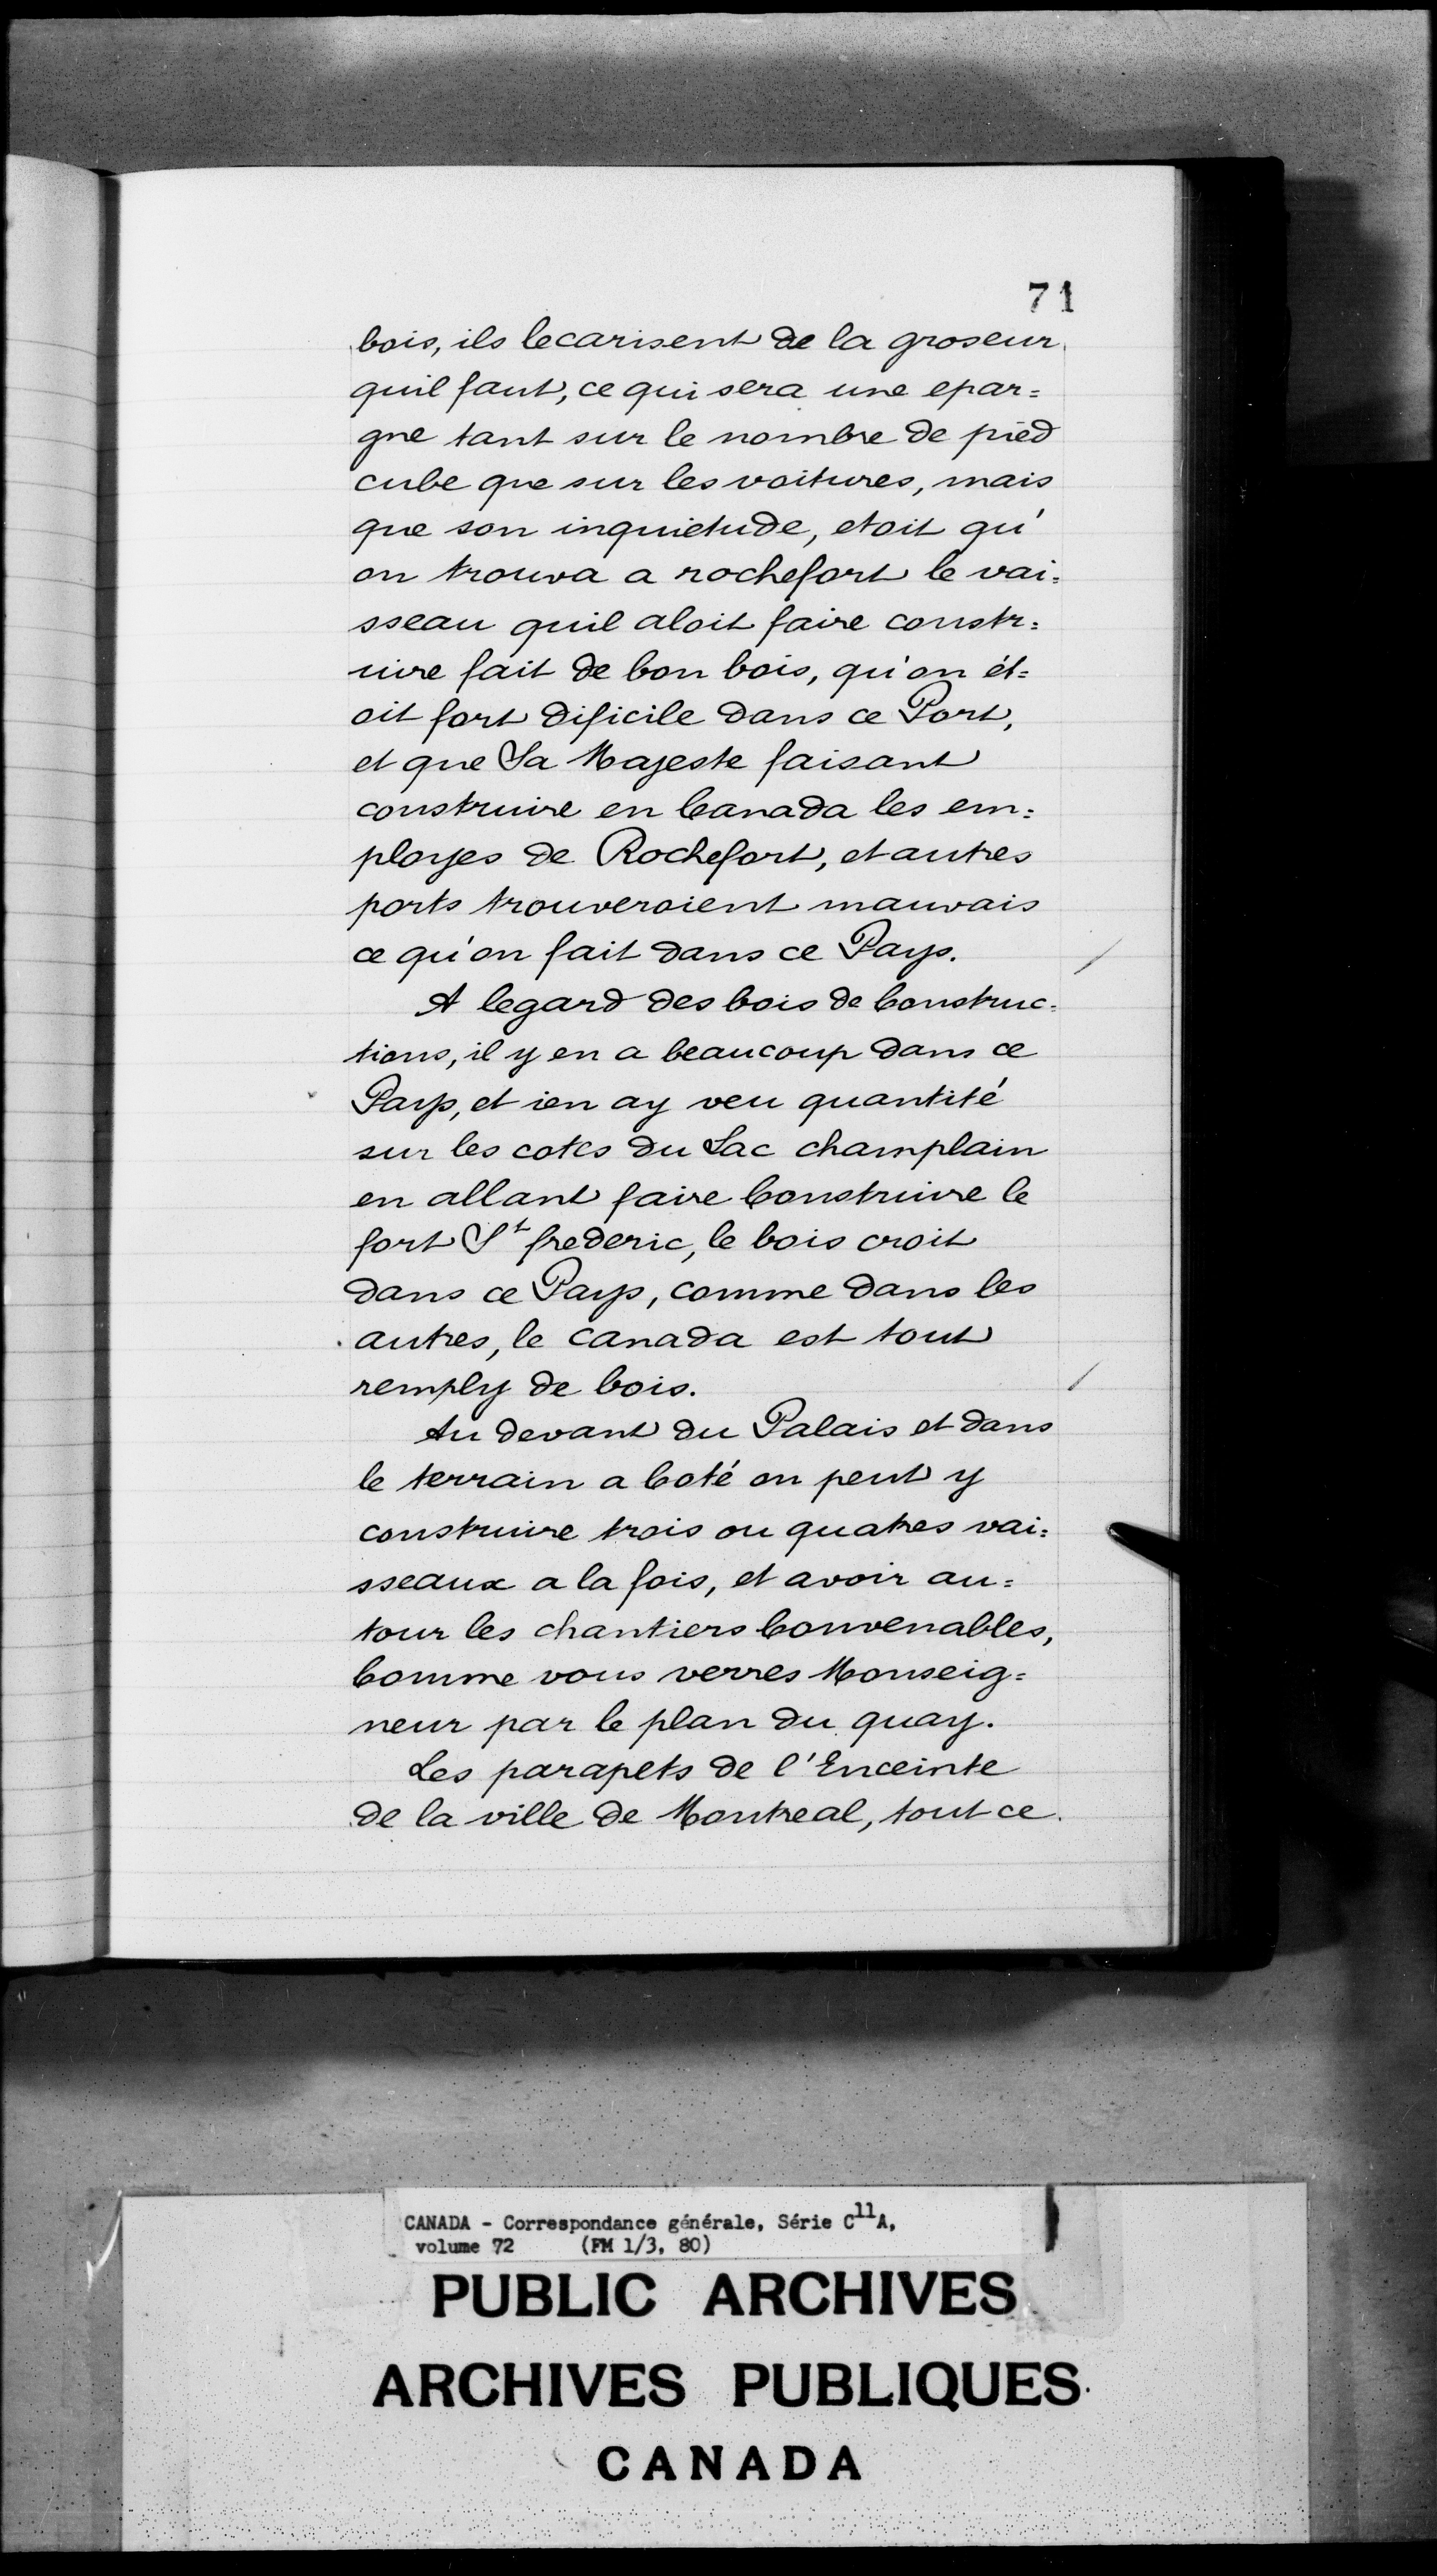 71
bois, ils lecarisent de la groseur
quil faut, ce qui sera une epar=
gne tant sur le nombre de pied
cube que sur les voitures, mais
que son inquietude, etoit qu'
on trouva a rochefort le vai=
sseau quil aloit faire constr=
uire fait de bon bois, qu'on ét=
oit fort dificile dans ce Port,
et que Sa Majeste faisant
construire en Canada les em=
ployes de Rochefort, et autres
ports trouveroient mauvais
ce qu'on fait dans ce Pays.
A legard des bois de Construc=
tions, il y en a beaucoup dans ce
Pays, et ien ay veu quantité
sur les cotes du Lac champlain
en allant faire Construire le
fort St frederic, le bois croit
dans ce Pays, comme dans les
autres, le canada est tout
remply de bois.
Au devant du Palais et dans
le terrain a Coté on peut y
construire trois ou quatres vai=
sseaux a la fois, et avoir au=
tour les chantiers Convenables,
Comme vous verres Monseig=
neur par le plan du quay.
Les parapets de l'Enceinte
de la ville de Montreal, tout ce
CANADA - Correspondance générale, Série C11A,
volume 72 (FM 1/3, 80)
PUBLIC ARCHIVES
ARCHIVES PUBLIQUES
CANADA